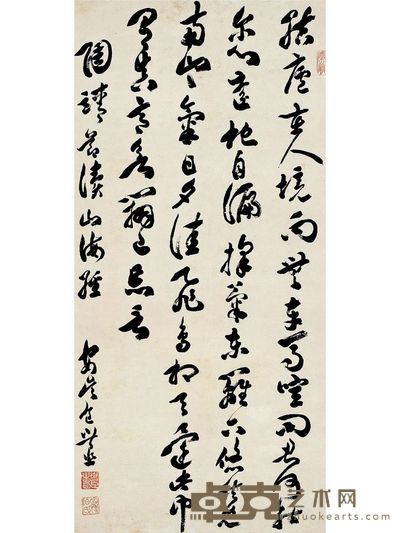 結廬在人境而無車馬喧問君何能
爾心遠地自偏採菊東籬下悠然見
南山々氣日夕佳飛鳥相與還此中
有真意欲辨已忘言
陶靖節讀山海經
卓克艺术网
zhuokearts.com